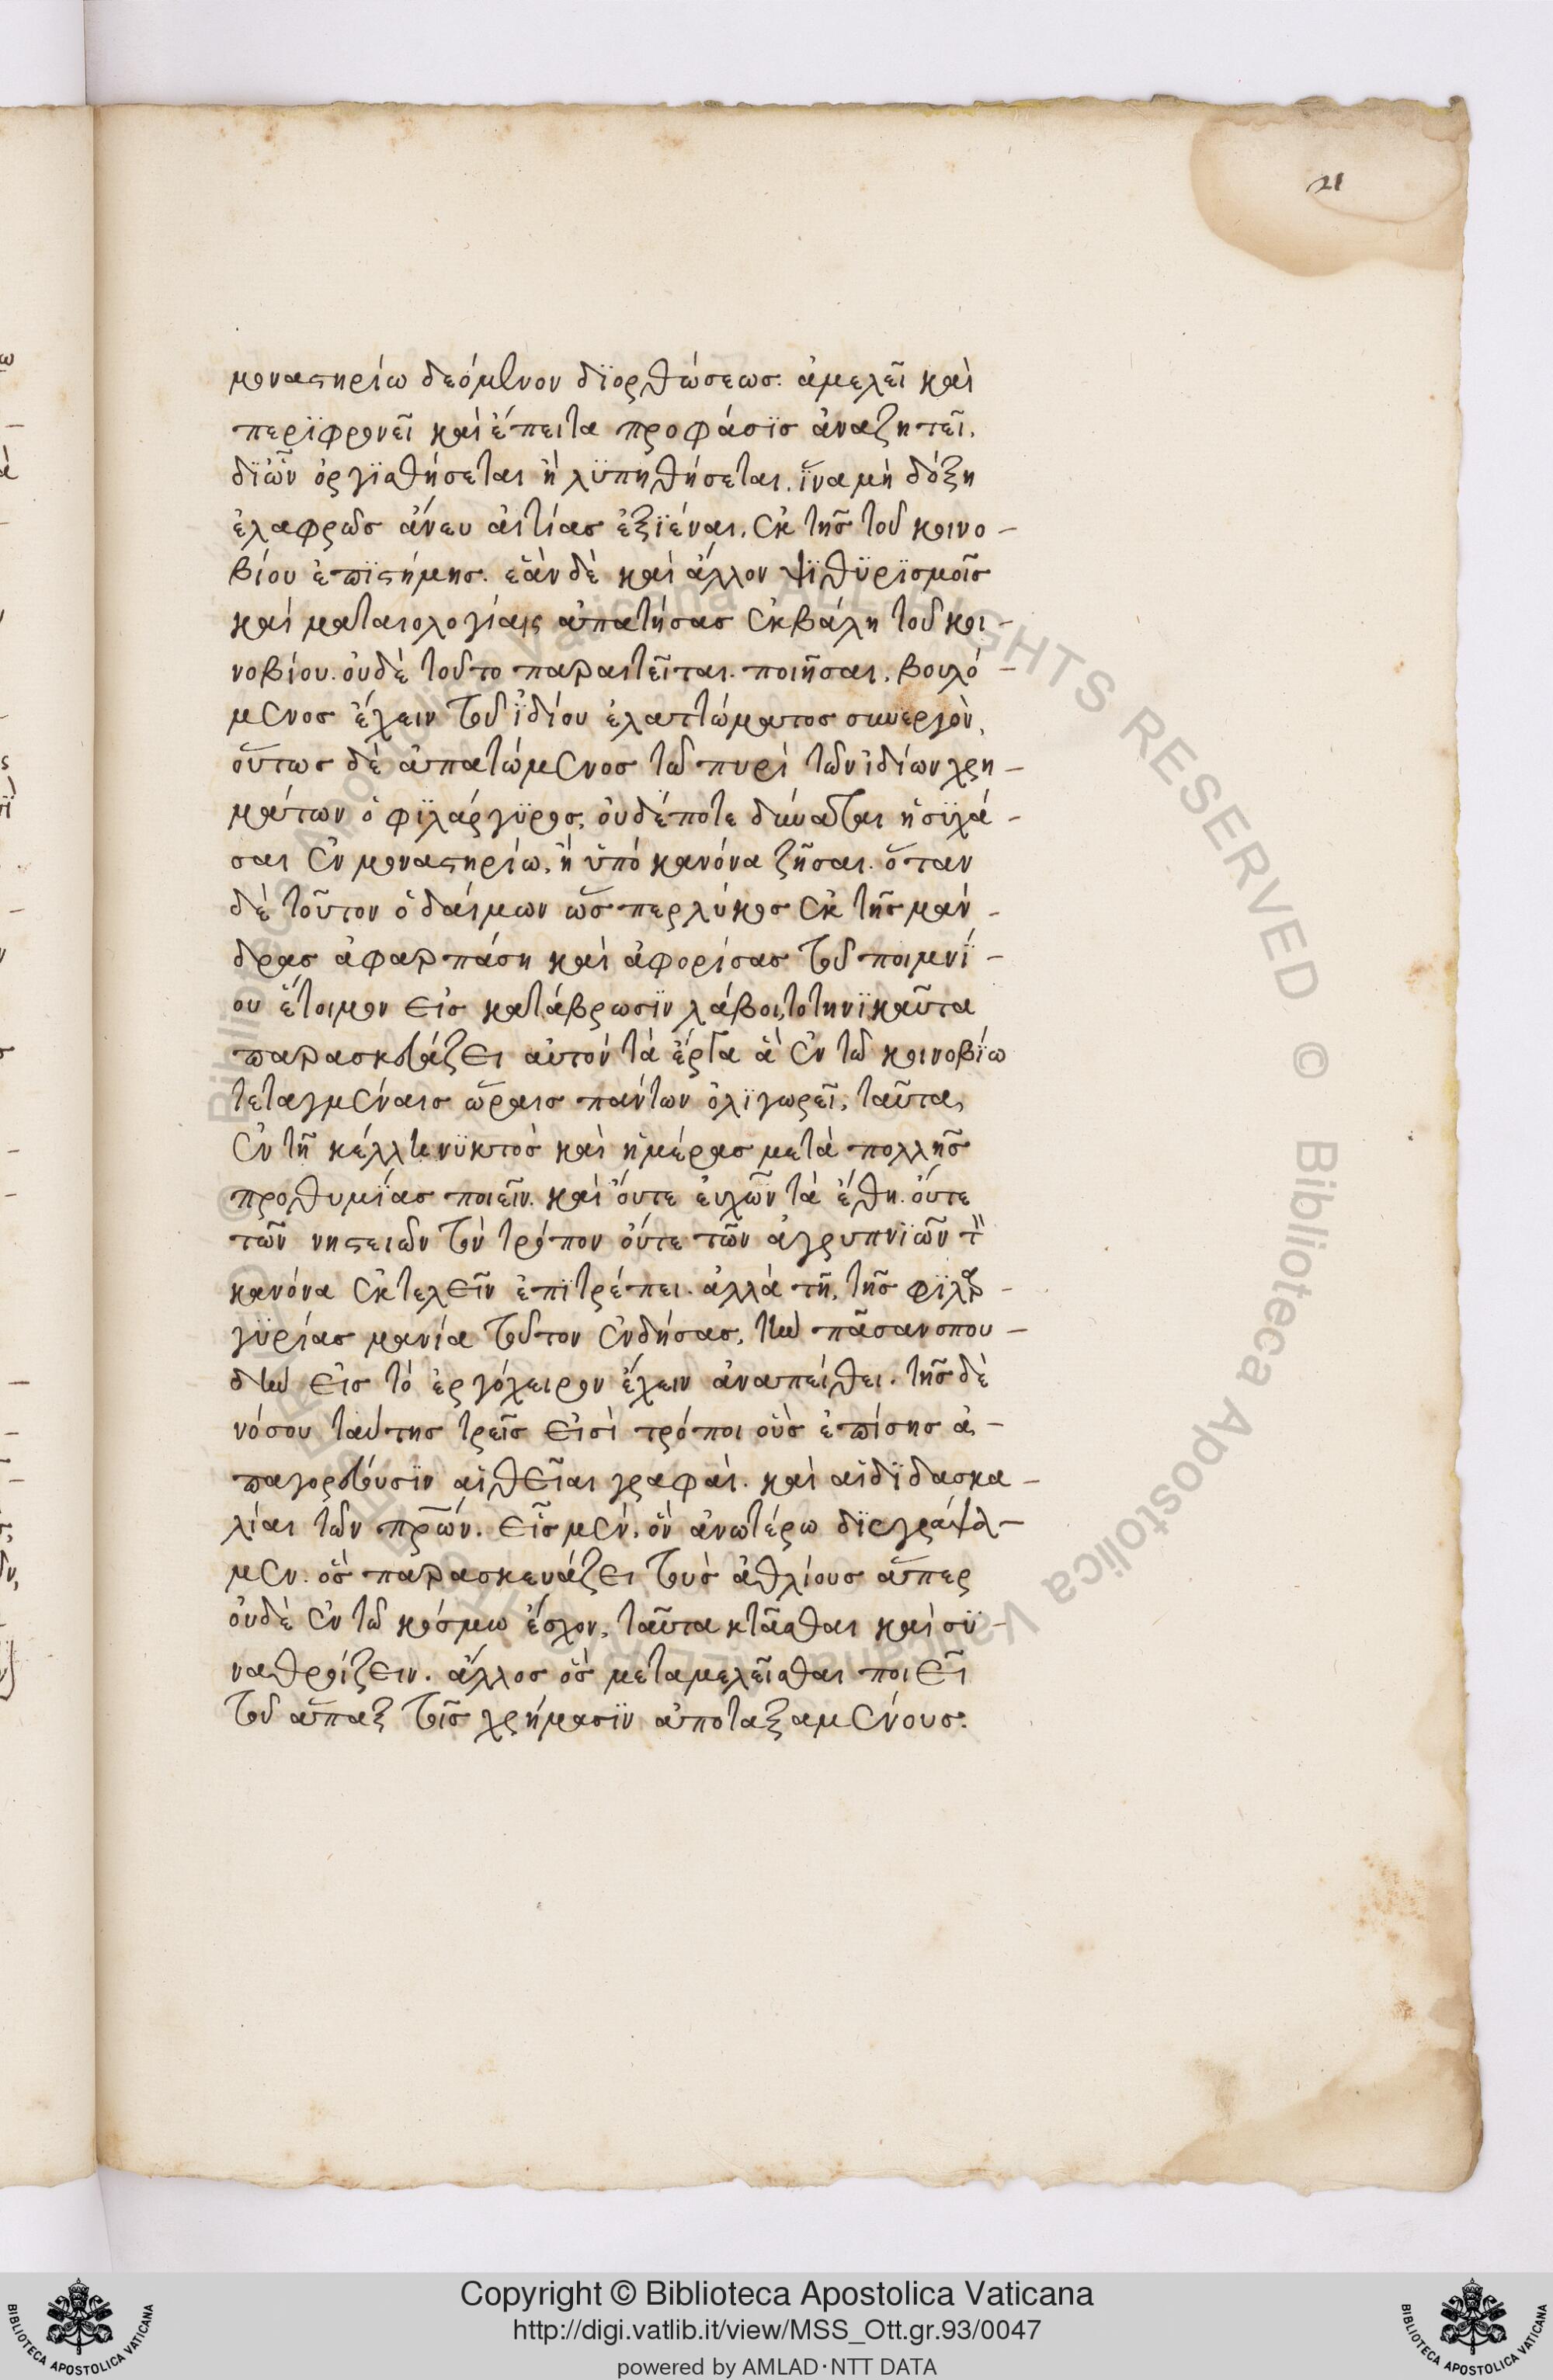 21
μοναστηρίω δεόμενον διορθώσεως. ἀμελεῖ καὶ
περϊφρονεῖ καὶ ἔπειτα προφάσϊς ἀναζητεῖ,
δϊὧν ὀργϊσθήσεται ἢ λϋπηθήσεται. ἵνα μὴ δόξη
ἐλαφρῶς ἄνευ αἰτίας ἐξϊέναι, ἐκ τῆς τοῦ κοινο-
βίου ἐπϊστήμης. εἂν δὲ καὶ ἄλλον ψϊθϋρϊσμοῖς
καὶ ματαιολογίαις ἀπατήσας ἐκβάλη τοῦ κοι-
νοβίου. οὐδὲ τοῦτο παραιτεῖται. ποιῆσαι, βουλό-
μενος ἔχειν τοῦ ἰδίου ἐλαττώματος συνεργὸν,
οὕτως δὲ ἀπατώμενος τῶ πυρὶ τῶν ἰδίων χρη-
μάτων ὁ φϊλάργϋρος, οὐδέποτε δύναται ἡσϋχά-
σαι ἐν μοναστηρίω, ἢ ὑπὸ κανόνα ζῆσαι. ὅταν
δὲ τοῦτον ὁ δαίμων ὥσπερ λύκος ἐκ τῆς μάν-
δρας ἀφαρπάση καὶ ἀφορίσας τοῦ ποιμνϊ-
ου ἕτοιμον εἰς κατάβρωσϊν λάβοι, τοτηνϊκαῦτα
παρασκευάζει αὐτὸν τὰ ἔργα ἃ ἐν τῶ κοινοβϊω
τεταγμέναις ὥραις πάντων ὀλϊγωρεῖ, ταῦτα,
ἐν τῆ κέλλη νϋκτὸς καὶ ἡμέρας μετὰ πολλῆς
προθυμϊας ποιεῖν. καὶ οὔτε εὐχῶν τὰ ἔθη. οὔτε
τῶν νηστειῶν τὸν τρόπον οὔτε τῶν ἀγρυπνϊῶν τ̏
κανόνα ἐκτελεῖν ἐπϊτρέπει. ἀλλὰ τῆ, τῆς φϊλαρ-
γϋρίας μανία τοῦτον ἐνδήσας, τὴν πᾶσαν σπου-
δὴν εἰς τὸ ἐργόχειρον ἔχειν ἀναπείθει. τῆς δὲ
νόσου ταύτης τρεῖς εἰσὶ τρόποι οὓς ἐπίσης ἀ-
παγορεύουσϊν αἱ θεῖαι γραφαὶ. καὶ αἱ δϊδασκα-
λίαι τῶν πρ̅ων. εἷς μὲν, ὃν ἀνωτέρω δϊεγράψα-
μεν. ὃς παρασκευάζει τοὺς ἀθλίους ἅπερ
οὐδὲ ἐν τῶ κόσμω ἔσχον, ταῦτα κτᾶσθαι καὶ σϋ-
ναθροίζειν. ἄλλος ὃς μεταμελεῖσθαι ποιεῖ
τοῦ ἅπαξ τοῖς χρήμασϊν ἀποταξαμένους.
© Biblioteca Apostolica Vaticana ALL RIGHTS RESERVED © Biblioteca Apostolica Vaticana
Copyright © Biblioteca Apostolica Vaticana
http://digi.vatlib.it/view/MSS_Ott.gr.93/0047
powered by AMLAD·NTT DATA
BIBLIOTECA APOSTOLICA VATICANA
BIBLIOTECA APOSTOLICA VATICANA